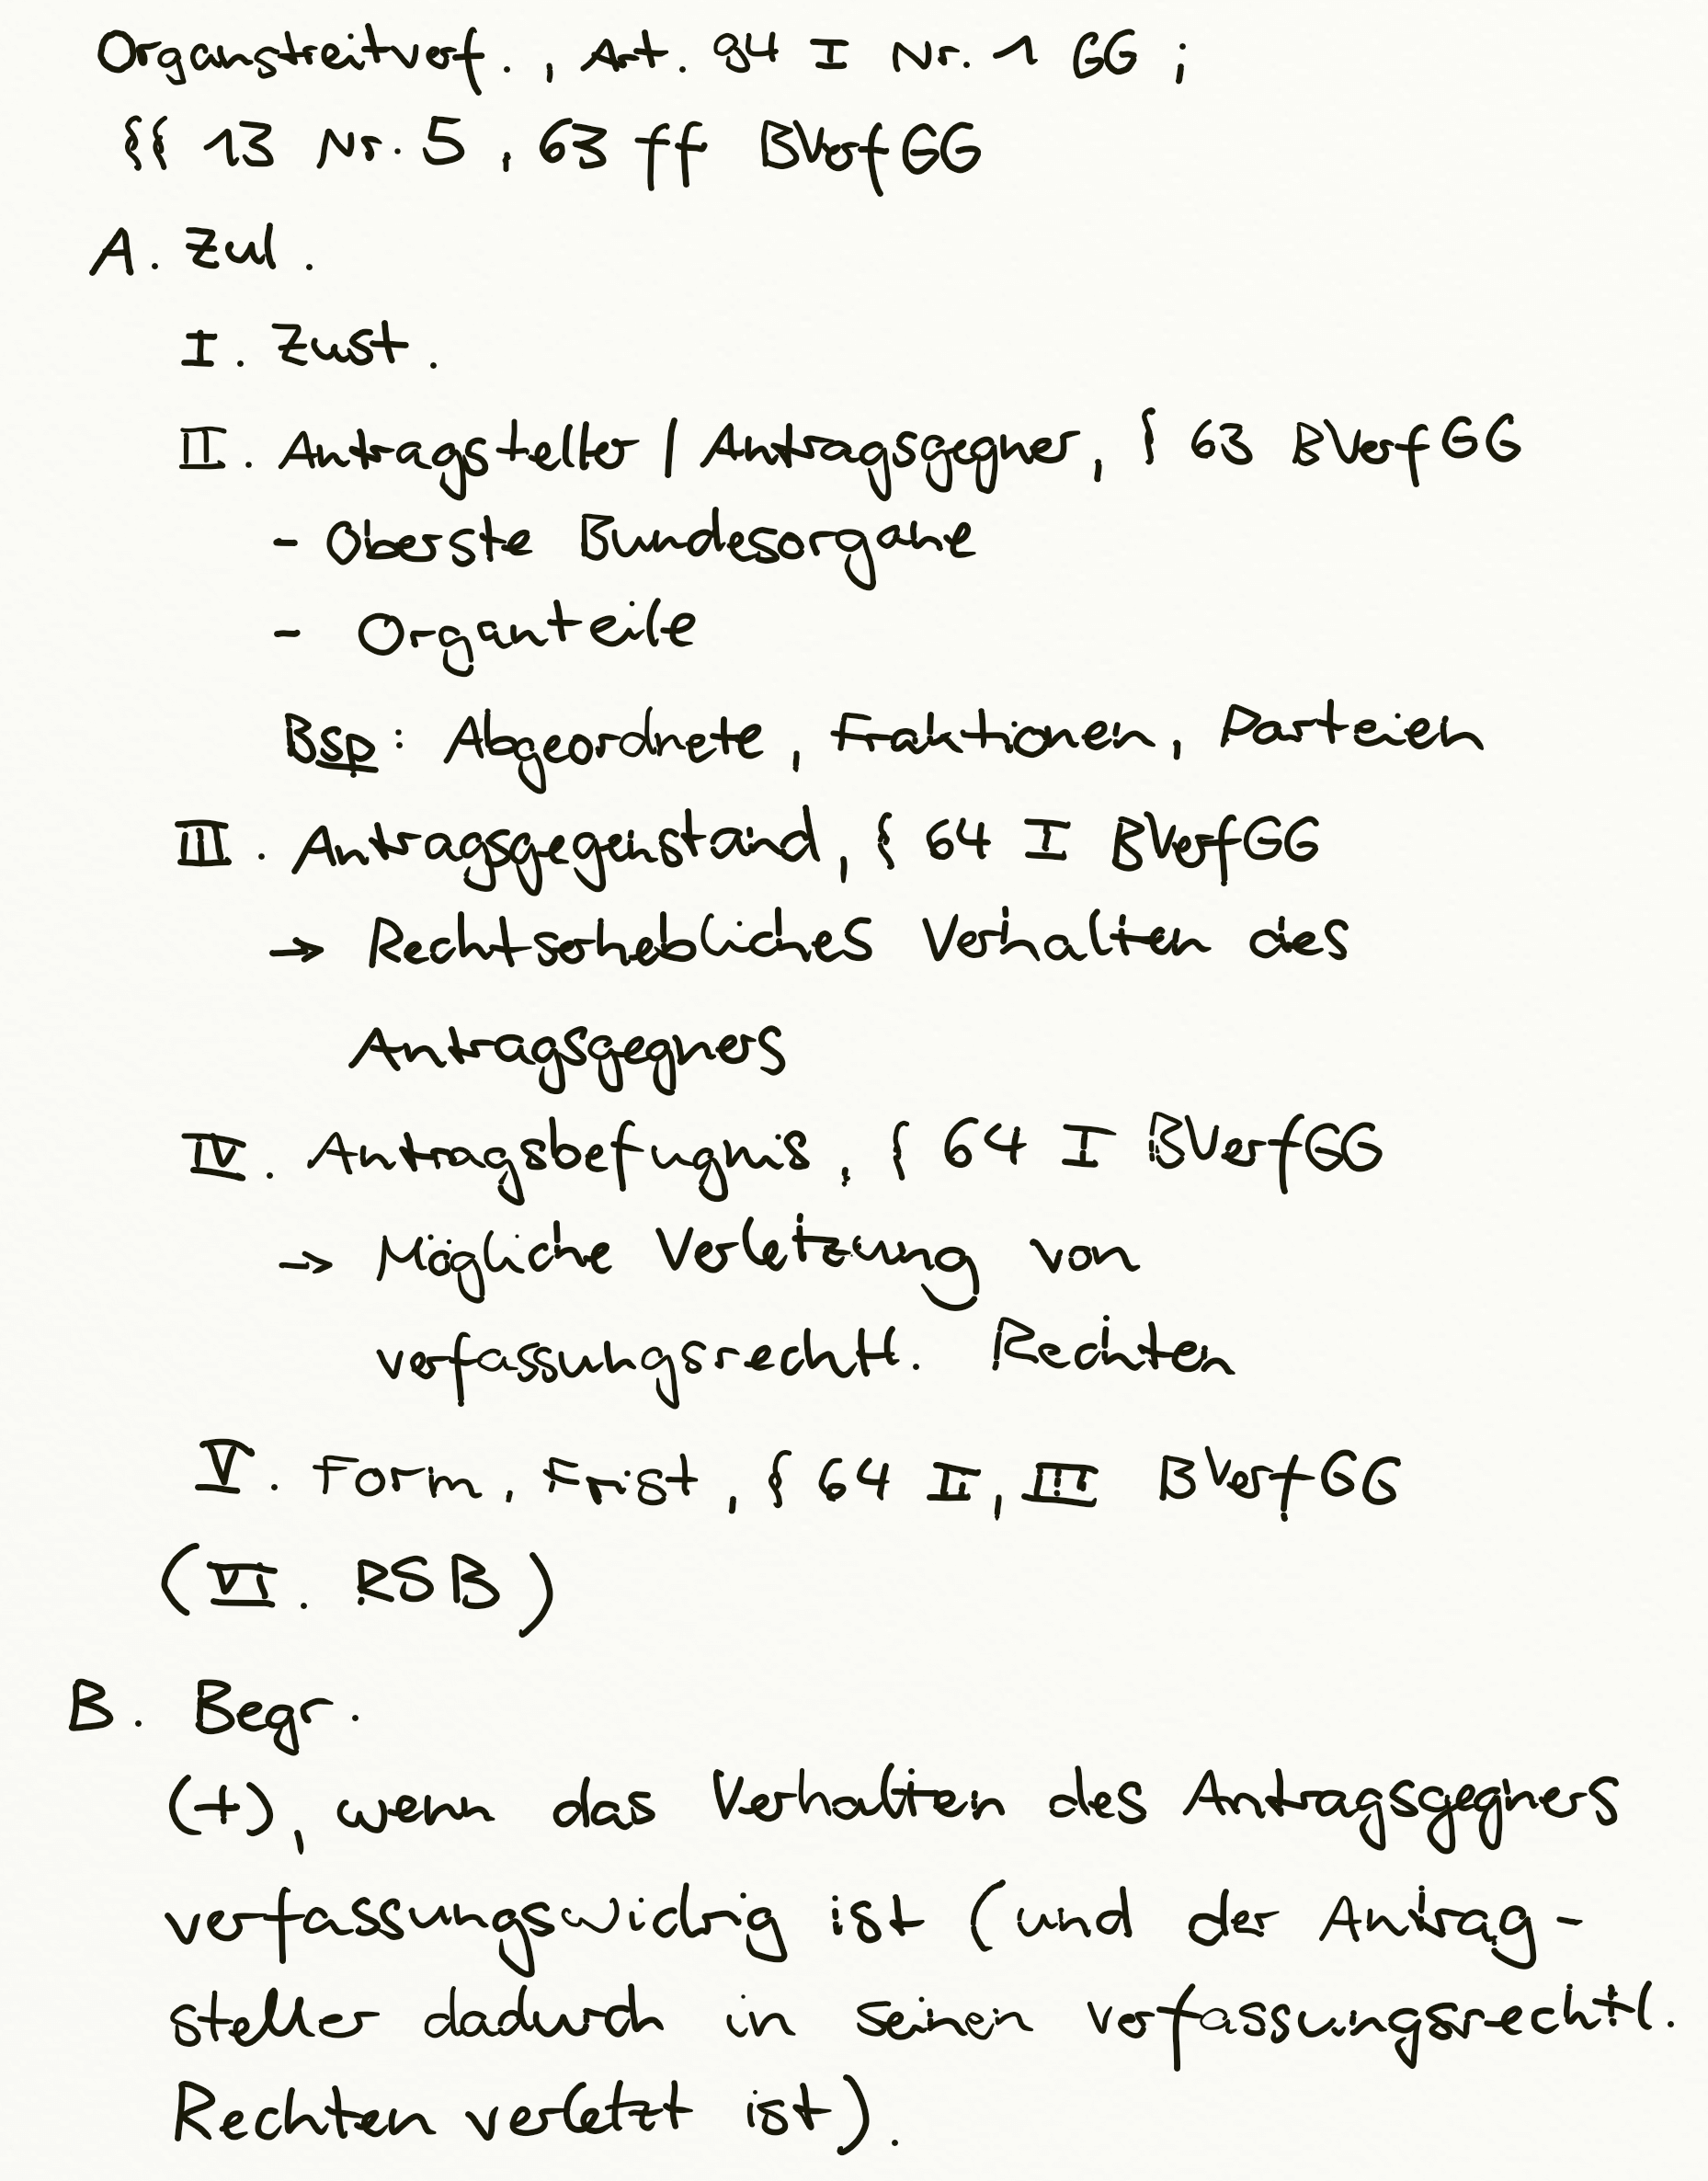 Organstreitverf., Art. 94 I Nr. 1 GG ;
§§ 13 Nr. 5, 63 ff BVerfGG
A. Zul.
I. Zust.
II. Antragsteller / Antragsgegner, § 63 BVerfGG
- Oberste Bundesorgane
- Organteile
Bsp: Abgeordnete, Fraktionen, Parteien
III. Antragsgegenstand, § 64 I BVerfGG
→ Rechtserhebliches Verhalten des
Antragsgegners
IV. Antragsbefugnis, § 64 I BVerfGG
→ Mögliche Verletzung von
verfassungsrechtl. Rechten
V. Form, Frist, § 64 II, III BVerfGG
(VI. RSB)
B. Begr.
(+), wenn das Verhalten des Antragsgegners
verfassungswidrig ist (und der Antrag-
steller dadurch in seinen verfassungsrechtl.
Rechten verletzt ist).